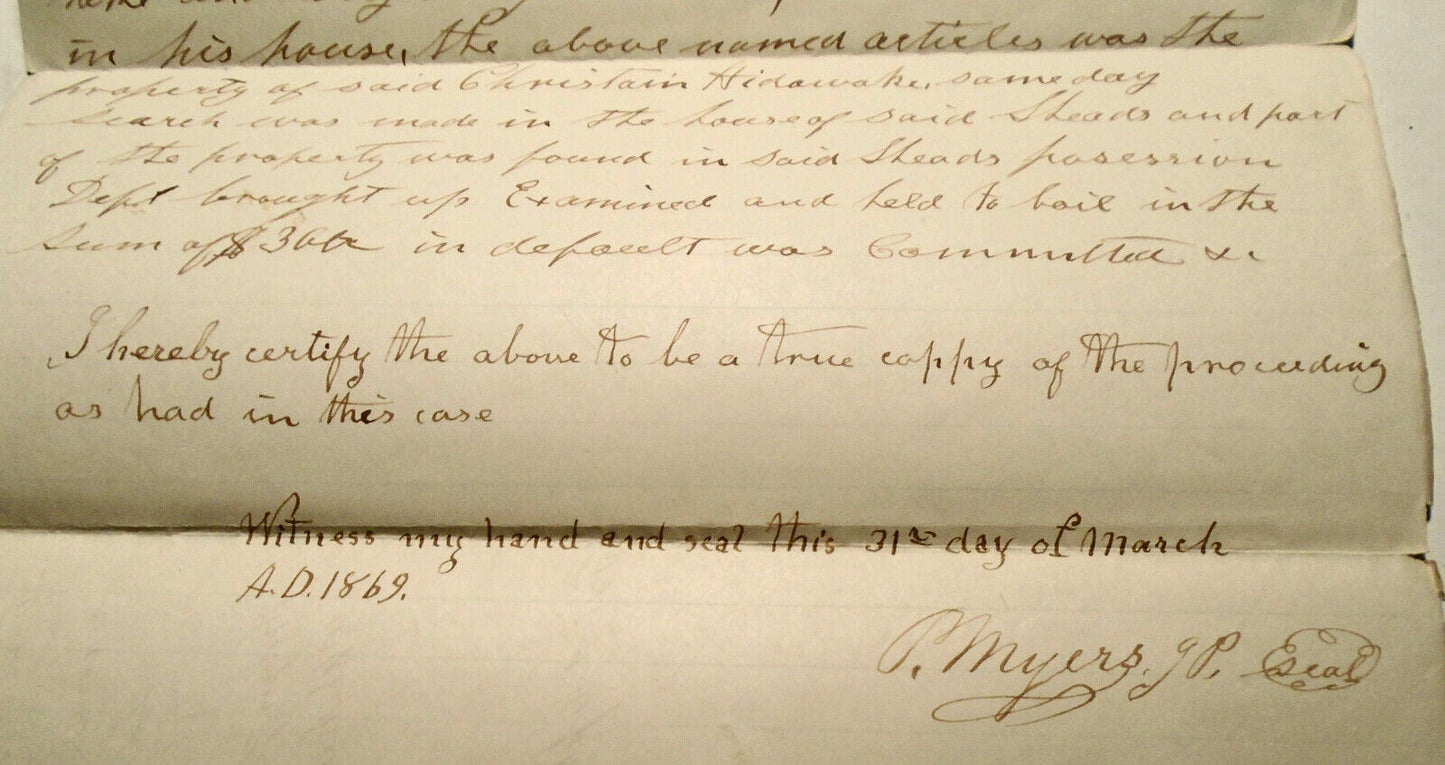 in his house, the above named articles was the
property of said Christain Hidawake, same day
search was made in the house of said Sheads and part
of the property was found in said Sheads posession
Deft brought up Examined and held to bail in the
sum of $300 in default was Committed &c
I hereby certify the above to be a true coppy of the proceeding
as had in this case
Witness my hand and seal this 31st day of March
A.D. 1869.
P. Myers. JP. Seal